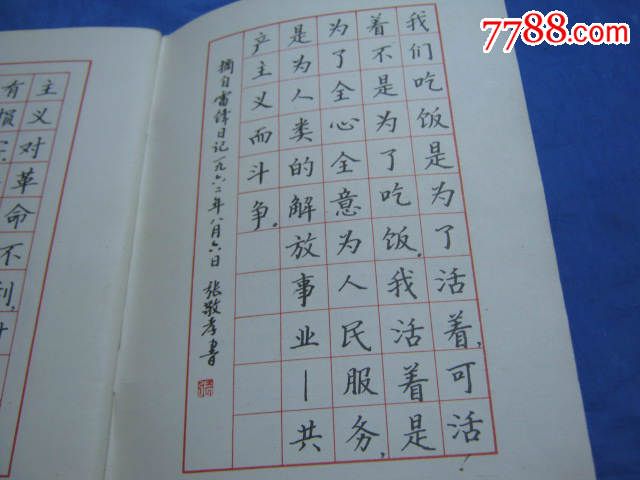 7788.com
中国收藏热线
我们吃饭是为了活着,可活
着不是为了吃饭,我活着是
为了全心全意为人民服务,
是为人类的解放事业—共
产主义而斗争。
摘自雷锋日记一九六二年八月六日 张敬孝书
主义对革命不利,
有损